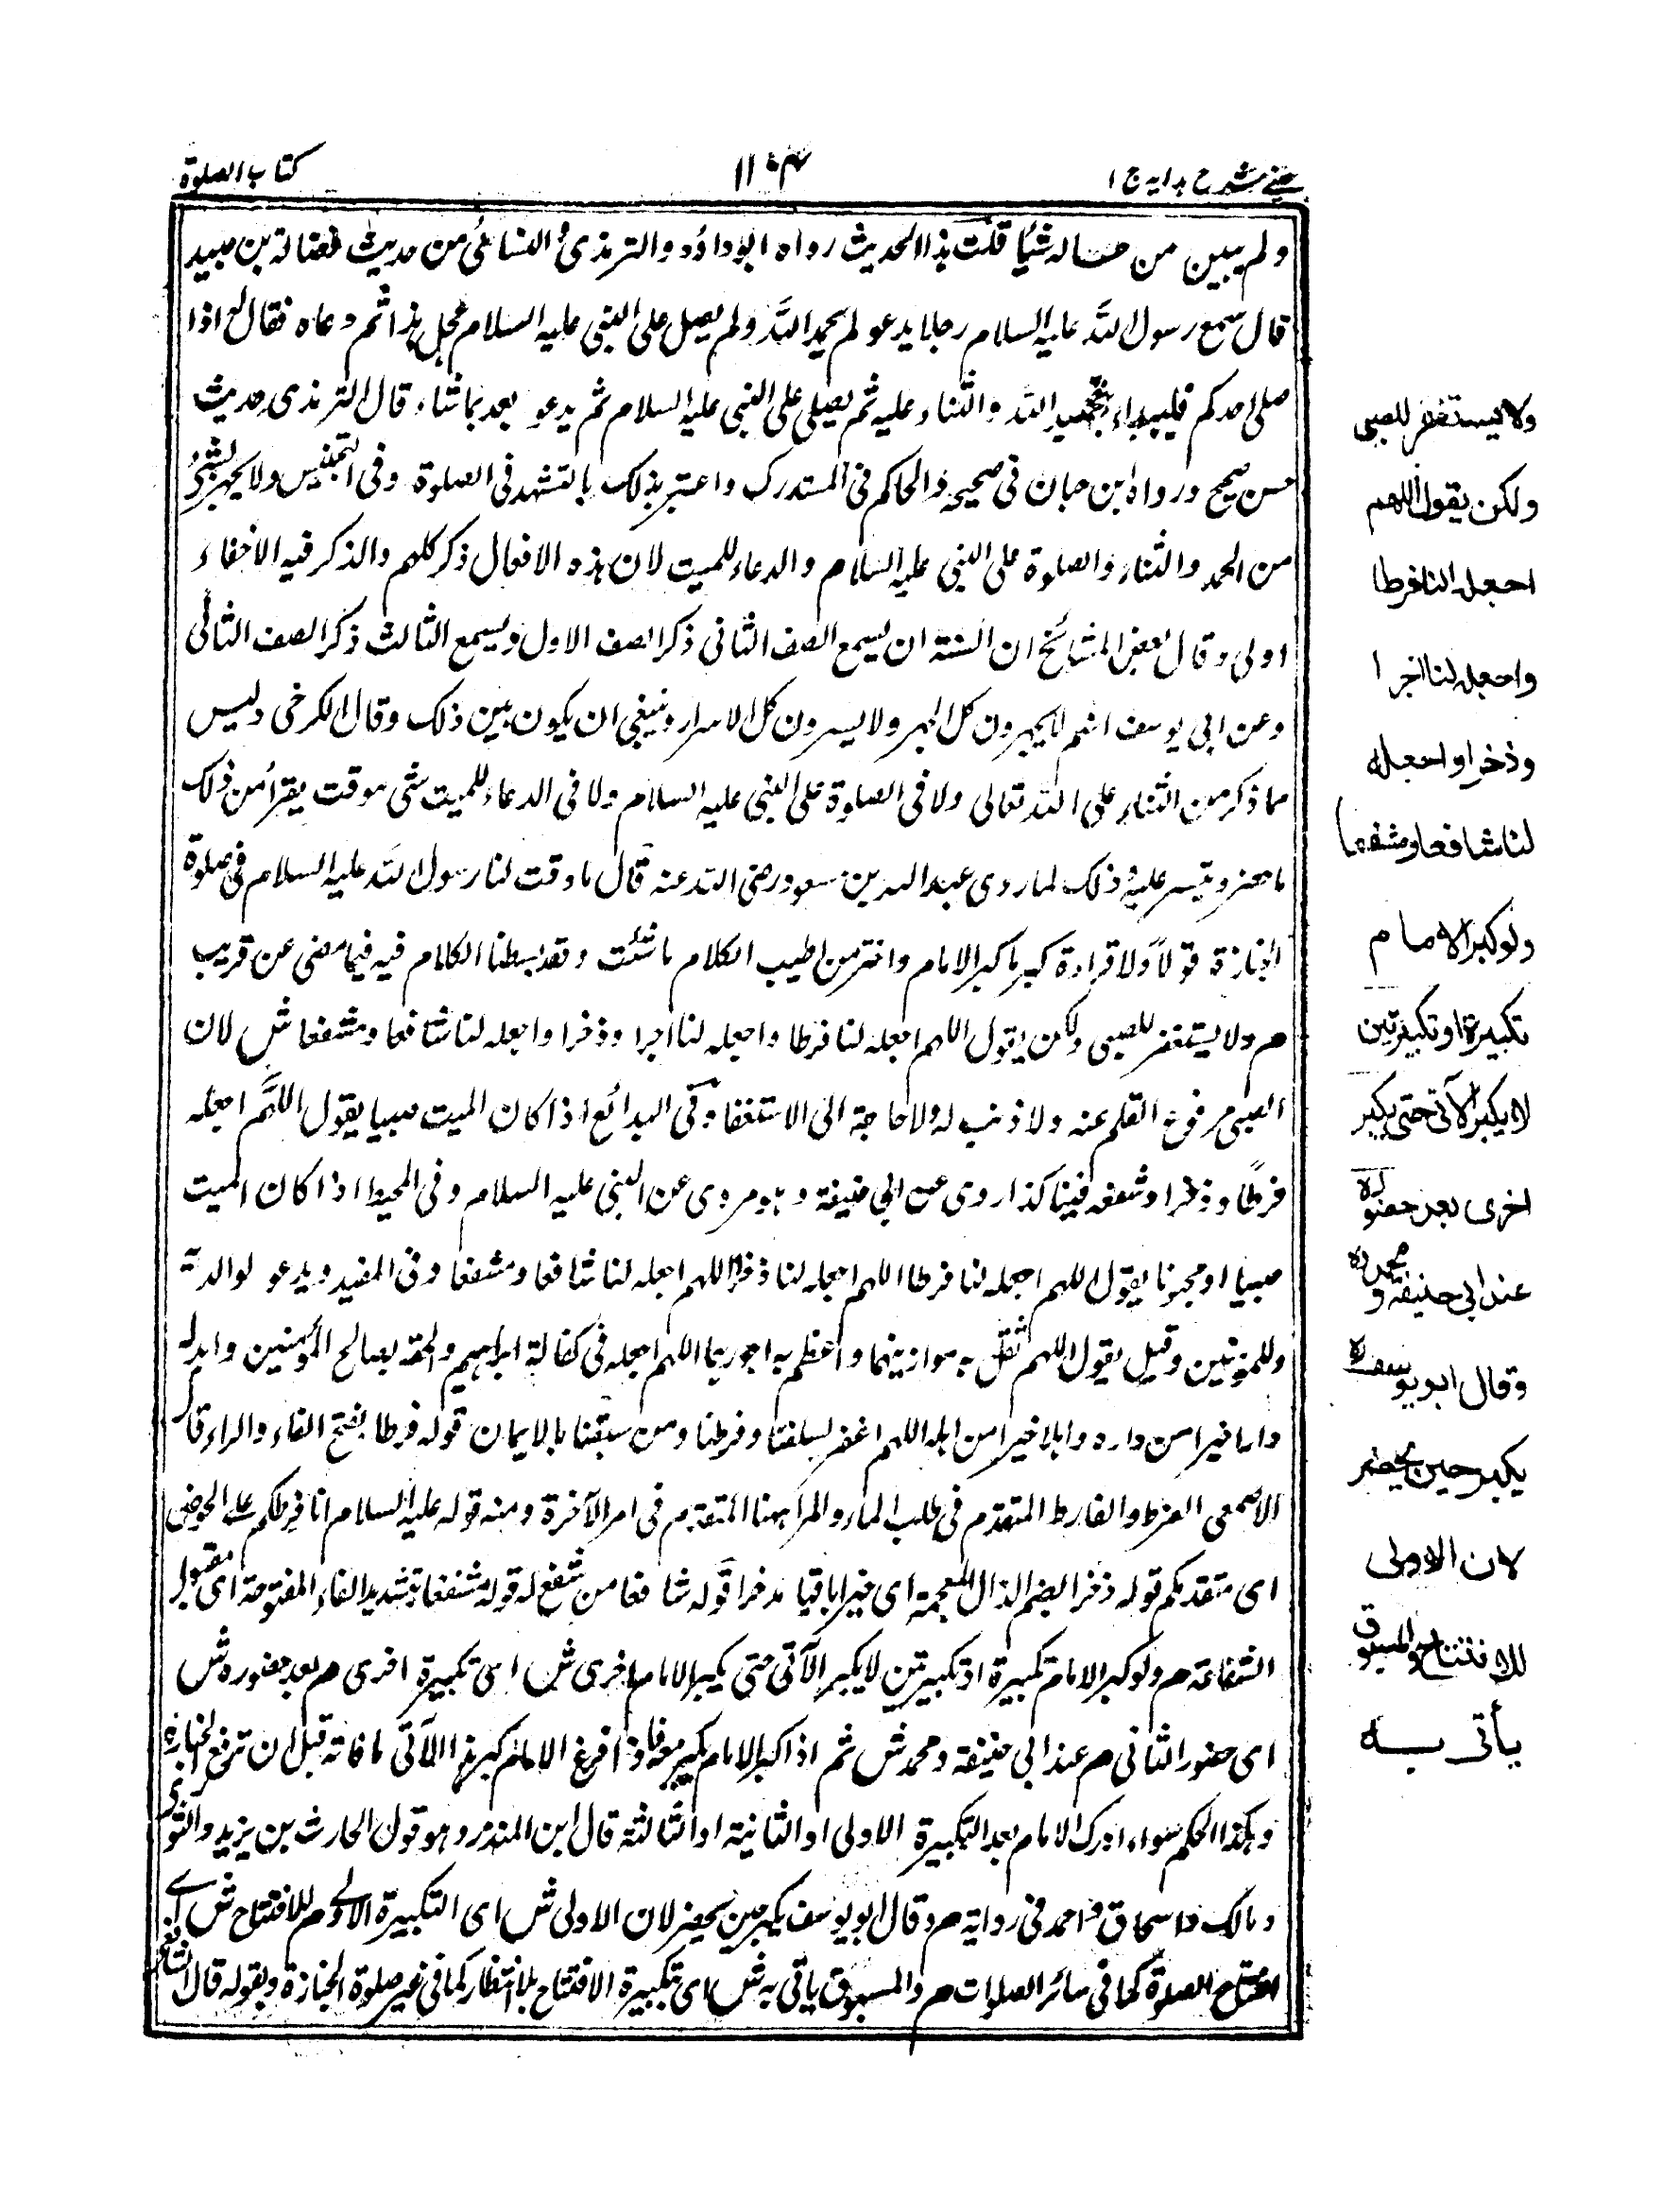 عینی شرح هدایه ج ۱
۱۱۰۴
کتاب الصلوة
ولم یبین من حاله شیئا قلت هذا الحدیث رواه ابوداؤد والترمذی والنسائی من حدیث فضالة بن عبید
قال سمع رسول الله علیه السلام رجلا یدعو لم یحمد الله ولم یصل علی النبی علیه السلام عجل هذا ثم دعاه فقال له اذا
صلی احدکم فلیبداء بتحمید الله والثناء علیه ثم یصلی علی النبی علیه السلام ثم یدعو بعد بما شاء قال الترمذی حدیث
حسن صحیح ورواه ابن حبان فی صحیحه والحاکم فی المستدرک واعتبر بذلک بالتشهد فی الصلوة وفی التجنیس ولا یجهر بشئ
من الحمد والثناء والصلوة علی النبی علیه السلام والدعاء للمیت لان هذه الافعال ذکر کلهم والذکر فیه الاخفاء
اولی وقال بعض المشائخ ان السنة ان یسمع الصف الثانی ذکر الصف الاول ویسمع الثالث ذکر الصف الثانی
وعن ابی یوسف انهم لا یجهرون کل الجهر ولا یسرون کل الاسرار وینبغی ان یکون بین ذلک وقال الکرخی ولیس
مما ذکر من الثناء علی الله تعالی ولا فی الصلوة علی النبی علیه السلام ولا فی الدعاء للمیت شئ موقت یقرأ من ذلک
ما حضر وتیسر علیه ذلک لما روی عبد الله بن مسعود رضی الله عنه قال ما وقت لنا رسول الله علیه السلام فی صلوة
الجنازة قولا ولا قراءة کبر ما کبر الامام واختر من اطیب الکلام ما شئت وقد بسطنا الکلام فیه فیما مضی عن قریب
م ولا یستغفر للصبی ولکن یقول اللهم اجعله لنا فرطا واجعله لنا اجرا وذخرا واجعله لنا شافعا ومشفعا ش لان
الصبی مرفوع القلم عنه ولا ذنب له ولا حاجة الی الاستغفار وفی البدائع اذا کان المیت صبیا یقول اللهم اجعله
فرطًا وذخرا وشفعه فینا کذا روی عن ابی حنیفة وهو مروی عن النبی علیه السلام وفی المحیط اذا کان المیت
صبیا او مجنونا یقول اللهم اجعله لنا فرطا اللهم اجعله لنا ذخرا اللهم اجعله لنا شافعا ومشفعا وفی المفید ویدعو لوالدیه
وللمؤمنین وقیل یقول اللهم ثقل به موازینهما واعظم به اجورهما اللهم اجعله فی کفالة ابراهیم والحقه بصالح المؤمنین وابدله
دارا خیرا من داره واهلا خیرا من اهله اللهم اغفر لسلفنا وفرطنا ومن سبقنا بالایمان قوله فرطا بفتح الفاء والراء قال
الاصمعی الفرط والفارط المتقدم فی طلب الماء والمراد ههنا المتقدم فی امر الآخرة ومنه قوله علیه السلام انا فرطکم علی الحوض
ای متقدمکم قوله ذخرا بضم الذال المعجمة ای خیرا باقیا مدخرا قوله شافعا من شفع له قوله مشفعا بتشدید الفاء المفتوحة ای مقبول
الشفاعة م ولو کبر الامام تکبیرة او تکبیرتین لا یکبر الآتی حتی یکبر الامام اخری ش ای تکبیرة اخری م بعد حضوره ش
ای حضور الثانی م عند ابی حنیفة ومحمد ش ثم اذا کبر الامام یکبر معه فاذا فرغ الامام کبر هذا الآتی ما فاته قبل ان ترفع الجنازة
وهکذا الحکم سواء ادرک الامام بعد التکبیرة الاولی او الثانیة او الثالثة قال ابن المنذر وهو قول الحارث بن یزید والثوری
ومالک واسحاق واحمد فی روایة م وقال ابو یوسف یکبر حین یحضر لان الاولی ش ای التکبیرة الاولی م للافتتاح ش ای
افتتاح الصلوة کما فی سائر الصلوات م والمسبوق یأتی به ش ای تکبیرة الافتتاح بلا انتظار کما فی غیر صلوة الجنازة وبقوله قال الشافعی
ولا یستغفر للصبی
ولکن یقول اللهم
اجعله لنا فرطا
واجعله لنا اجرا
وذخرا واجعله
لنا شافعا ومشفعا
ولو کبر الامام
تکبیرة او تکبیرتین
لا یکبر الآتی حتی یکبر
اخری بعد حضوره
عند ابی حنیفة ومحمد ره
وقال ابو یوسف ره
یکبر حین یحضر
لان الاولی
للافتتاح والمسبوق
یأتی به